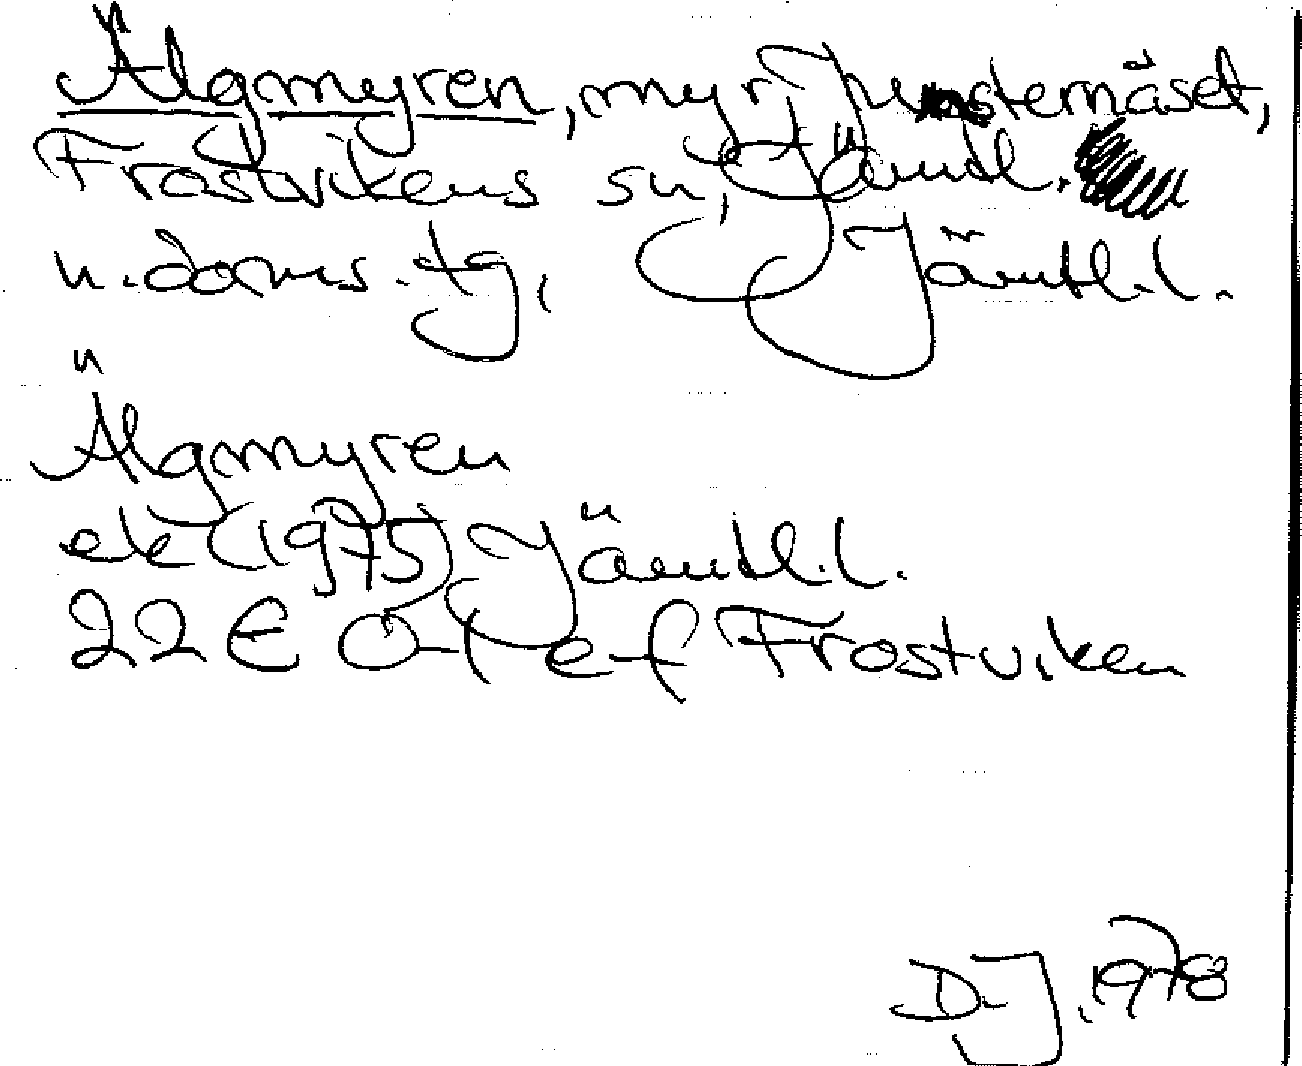 Älgmyren, myr, Junsternäset,
Frostvikens sn, Jämtl.
n. doms. tg, Jämtl. l.
Älgmyren
ek (1975) Jämtl. l.
22E 0-1 e-f Frostviken
D.J. 1978